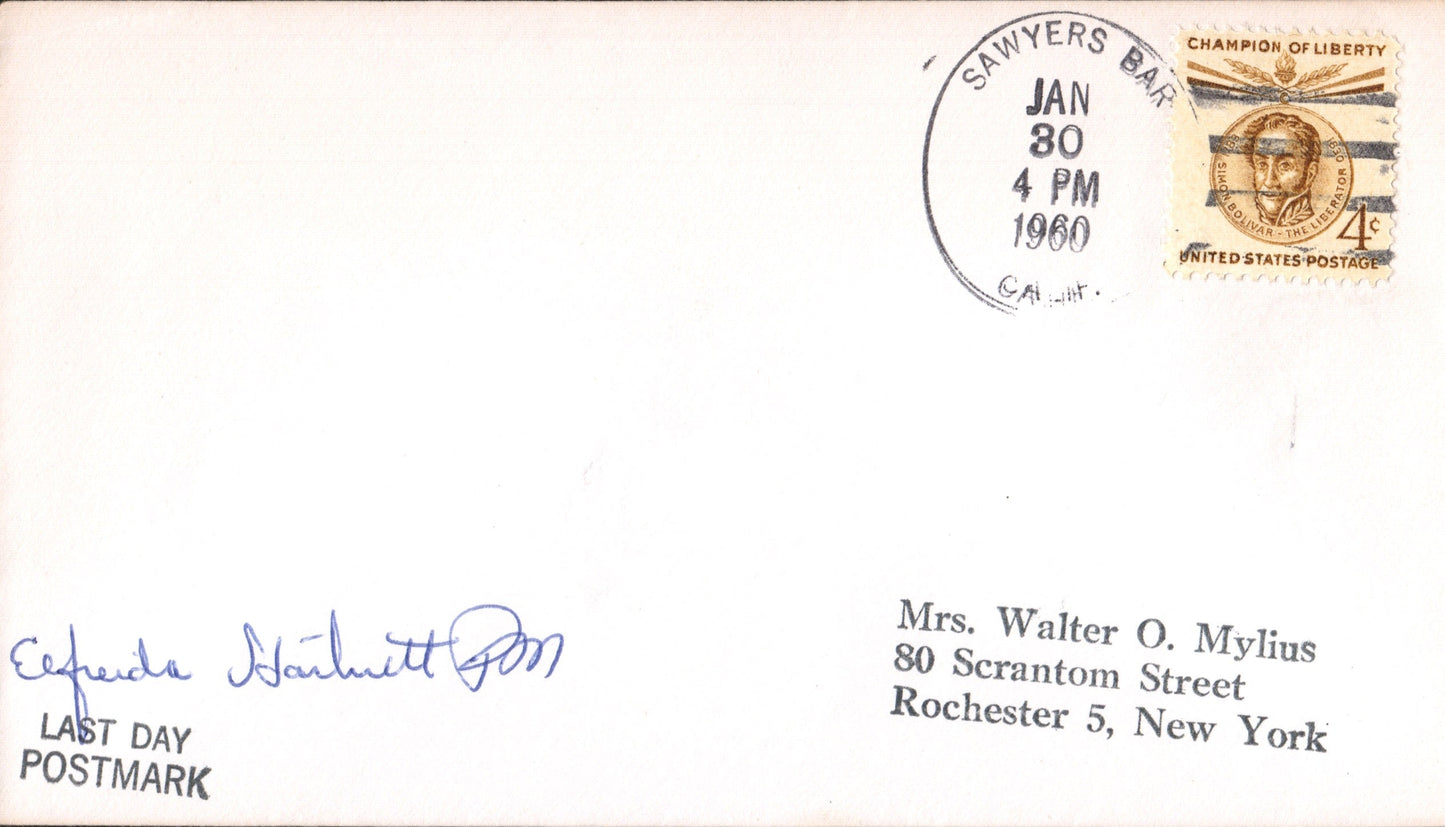 SAWYERS BAR
JAN
30
4 PM
1960
CHAMPION OF LIBERTY
SIMON BOLIVAR - THE LIBERATOR
4¢
UNITED STATES POSTAGE
Mrs. Walter O. Mylius
80 Scrantom Street
Rochester 5, New York
Elfreida Hartnett PM
LAST DAY
POSTMARK